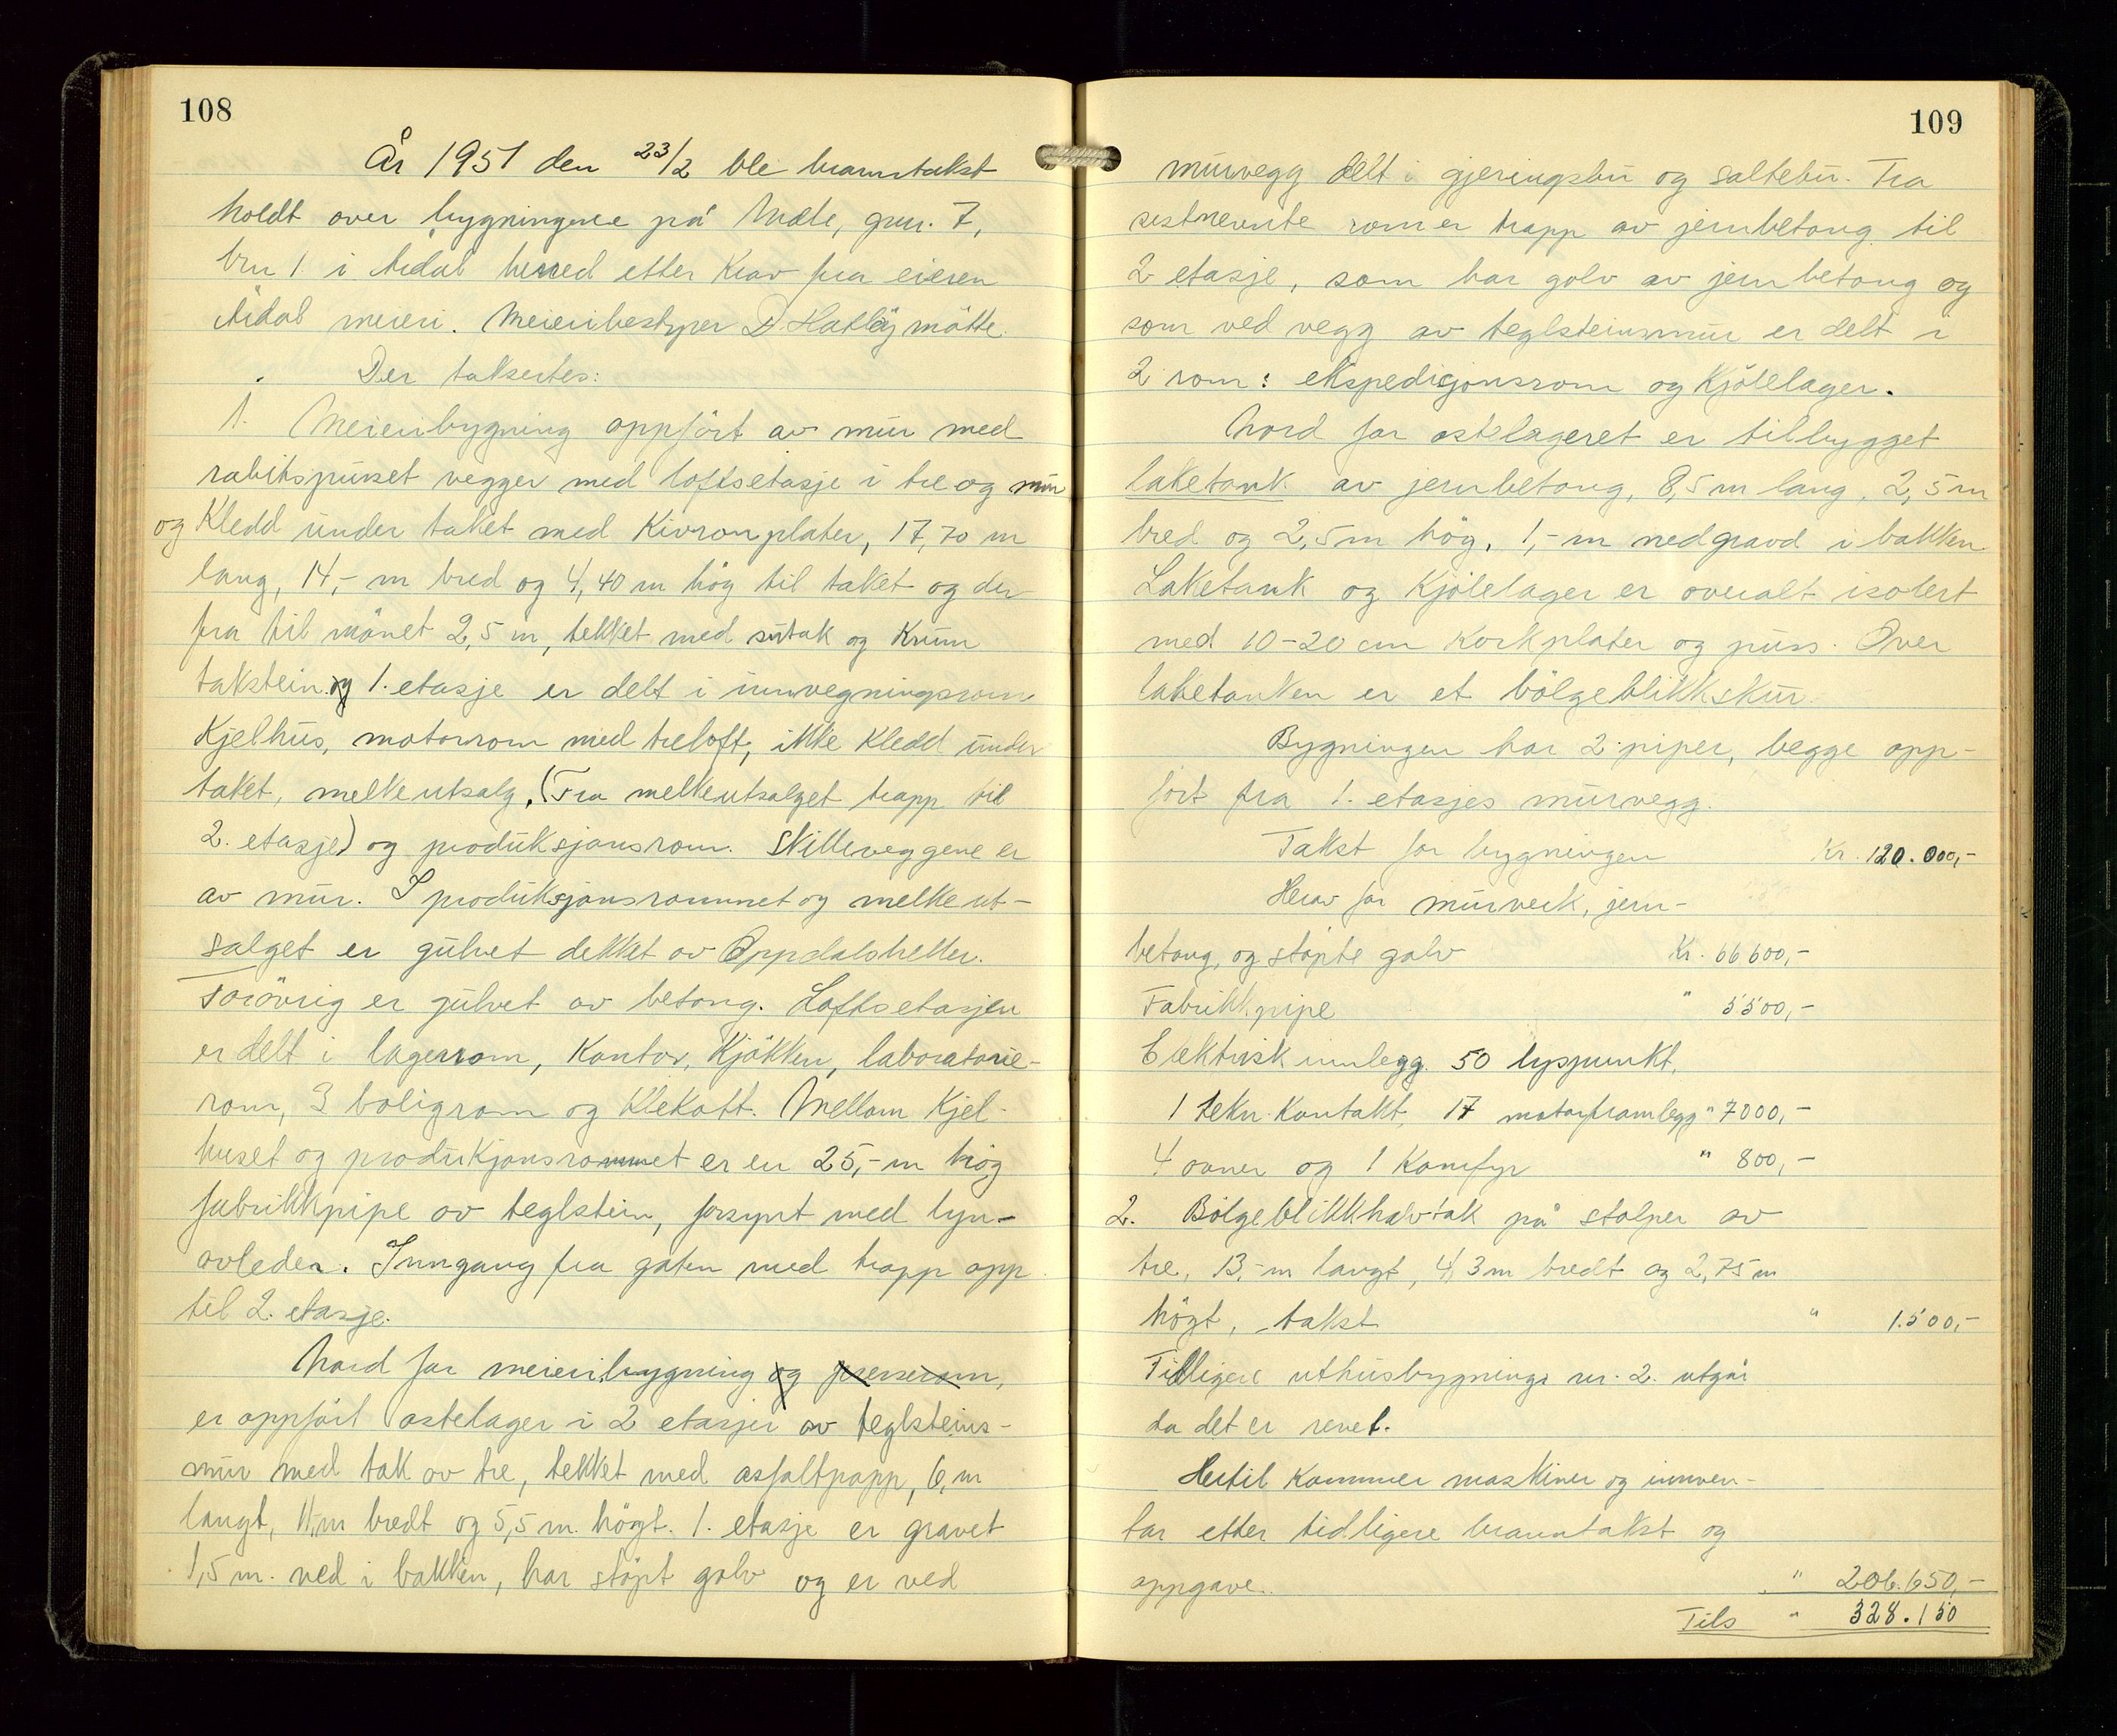 108
År 1951 den 23/2 ble branntakst
holdt over bygningene på Mæle, gnr. 7,
bnr 1 i Årdal herred etter krav fra eieren
Årdal meieri. Meieribestyrer D. Hatløy møtte.
Der taksertes:
1. Meieribygning oppført av mur med
rabitspusset vegger med loftsetasje i tre og mur
og kledd under taket med Kivronplater, 17,70 m
lang, 14,- m bred og 4,40 m hög til taket og der
fra til mönet 2,5 m, tekket med sutak og krum
takstein og 1. etasje er delt i innvegningsrom
Kjelhus, motorrom med treloft, ikke kledd under
taket, melkeutsalg, (Fra melkeutsalget trapp til
2. etasje) og produksjonsrom. Skilleveggene er
av mur. I produksjonsrommet og melkeut-
salget er gulvet dekket av Oppdalsheller.
Forövrig er gulvet av betong. Loftsetasjen
er delt i lagerrom, Kontor, Kjökken, laboratorie-
rom, 3 boligrom og klekott. Mellom Kjel-
huset og produkjonsrommet er en 25,- m hög
fabrikkpipe av teglstein, forsynt med lyn-
avleder. Inngang fra gaten med trapp opp
til 2. etasje.
Nord for meieribygning og presserom,
er oppfört ostelager i 2 etasjer av teglsteins-
mur med tak av tre, tekket med asfaltpapp, 6,m
langt, 11,m bredt og 5,5 m. högt. 1. etasje er gravet
1,5 m. ned i bakken, har stöpt golv og er ved
109
murvegg delt i gjeringsbu og saltebu. Fra
sistnevnte rom er trapp av jernbetong til
2 etasje, som har golv av jernbetong og
som ved vegg av teglsteinsmur er delt i
2 rom: ekspedisjonsrom og Kjölelager.
Nord for ostelageret er tilbygget
laketank av jernbetong, 8,5 m lang, 2,5 m
bred og 2,5 m hög, 1,- m nedgravd i bakken.
Laketank og Kjölelager er overalt isolert
med 10-20 cm Korkplater og puss. Over
laketanken er et bölgeblikkskur.
Bygningen har 2 piper, begge opp-
fört fra 1. etasjes murvegg.
Takst for bygningen Kr. 120.000,-
Herav for murverk, jern-
betong, og stöpte golv Kr. 66600,-
Fabrikkpipe " 5500,-
Elektrisk innlegg. 50 lyspunkt,
1 tekn. Kontakt, 17 motorframlegg " 7000,-
4 ovner og 1 Komfyr " 800,-
2. Bölgeblikkhalvtak på stolper av
tre, 13,- m langt, 4,3 m bredt og 2,75 m
högt, takst " 1.500,-
Tidligere uthusbygninge nr. 2. utgår
da det er revet.
Hertil kommer maskiner og innven-
tar etter tidligere branntakst og
oppgave. " 206.650,-
Tils " 328.150